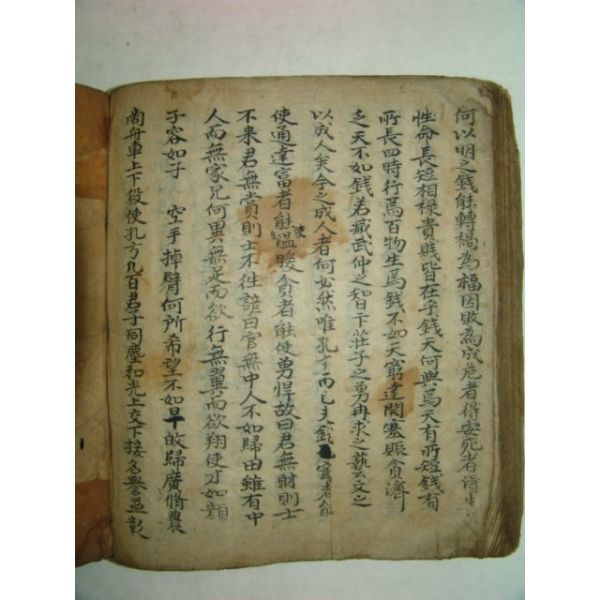 何以明之錢能轉禍為福因敗為成危者得安死者
性命長短相祿貴賤皆在乎錢天何與焉天有所短錢有
所長四時行焉百物生焉錢不如天窮達開塞賑貧濟
乏天不如錢若臧武仲之智卞莊子之勇冉求之藝文之
以成人矣今之成人者何必然唯孔方而已夫錢窮者能
使通達富者能使溫暖貧者能使勇悍故曰君無財則士
不来君無賞則士不往諺曰官無中人不如歸由雖有中
人而無家兄何異無足而欲行無翼而欲翔使才如顏
子容如子 空手掉臂何所希望不如早歸廣脩農
商舟車上下役使孔方凡百君子同塵和光上交下接名譽益彰